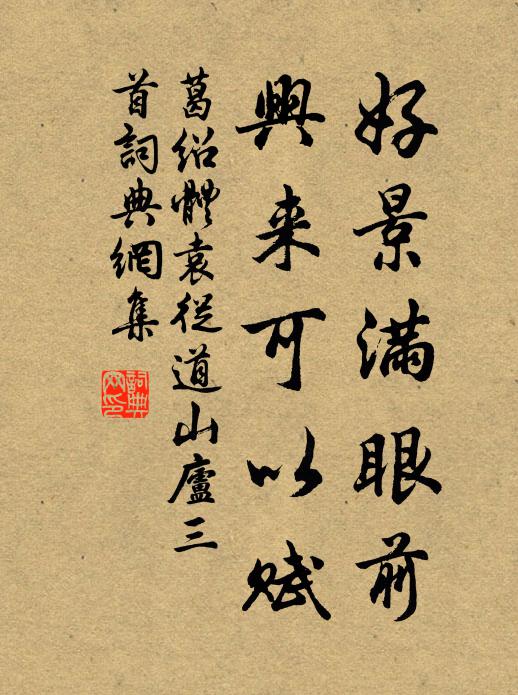 好景满眼前
興来可以赋
葛绍體袁從道山廬三
首詞典網集
詞典
网印